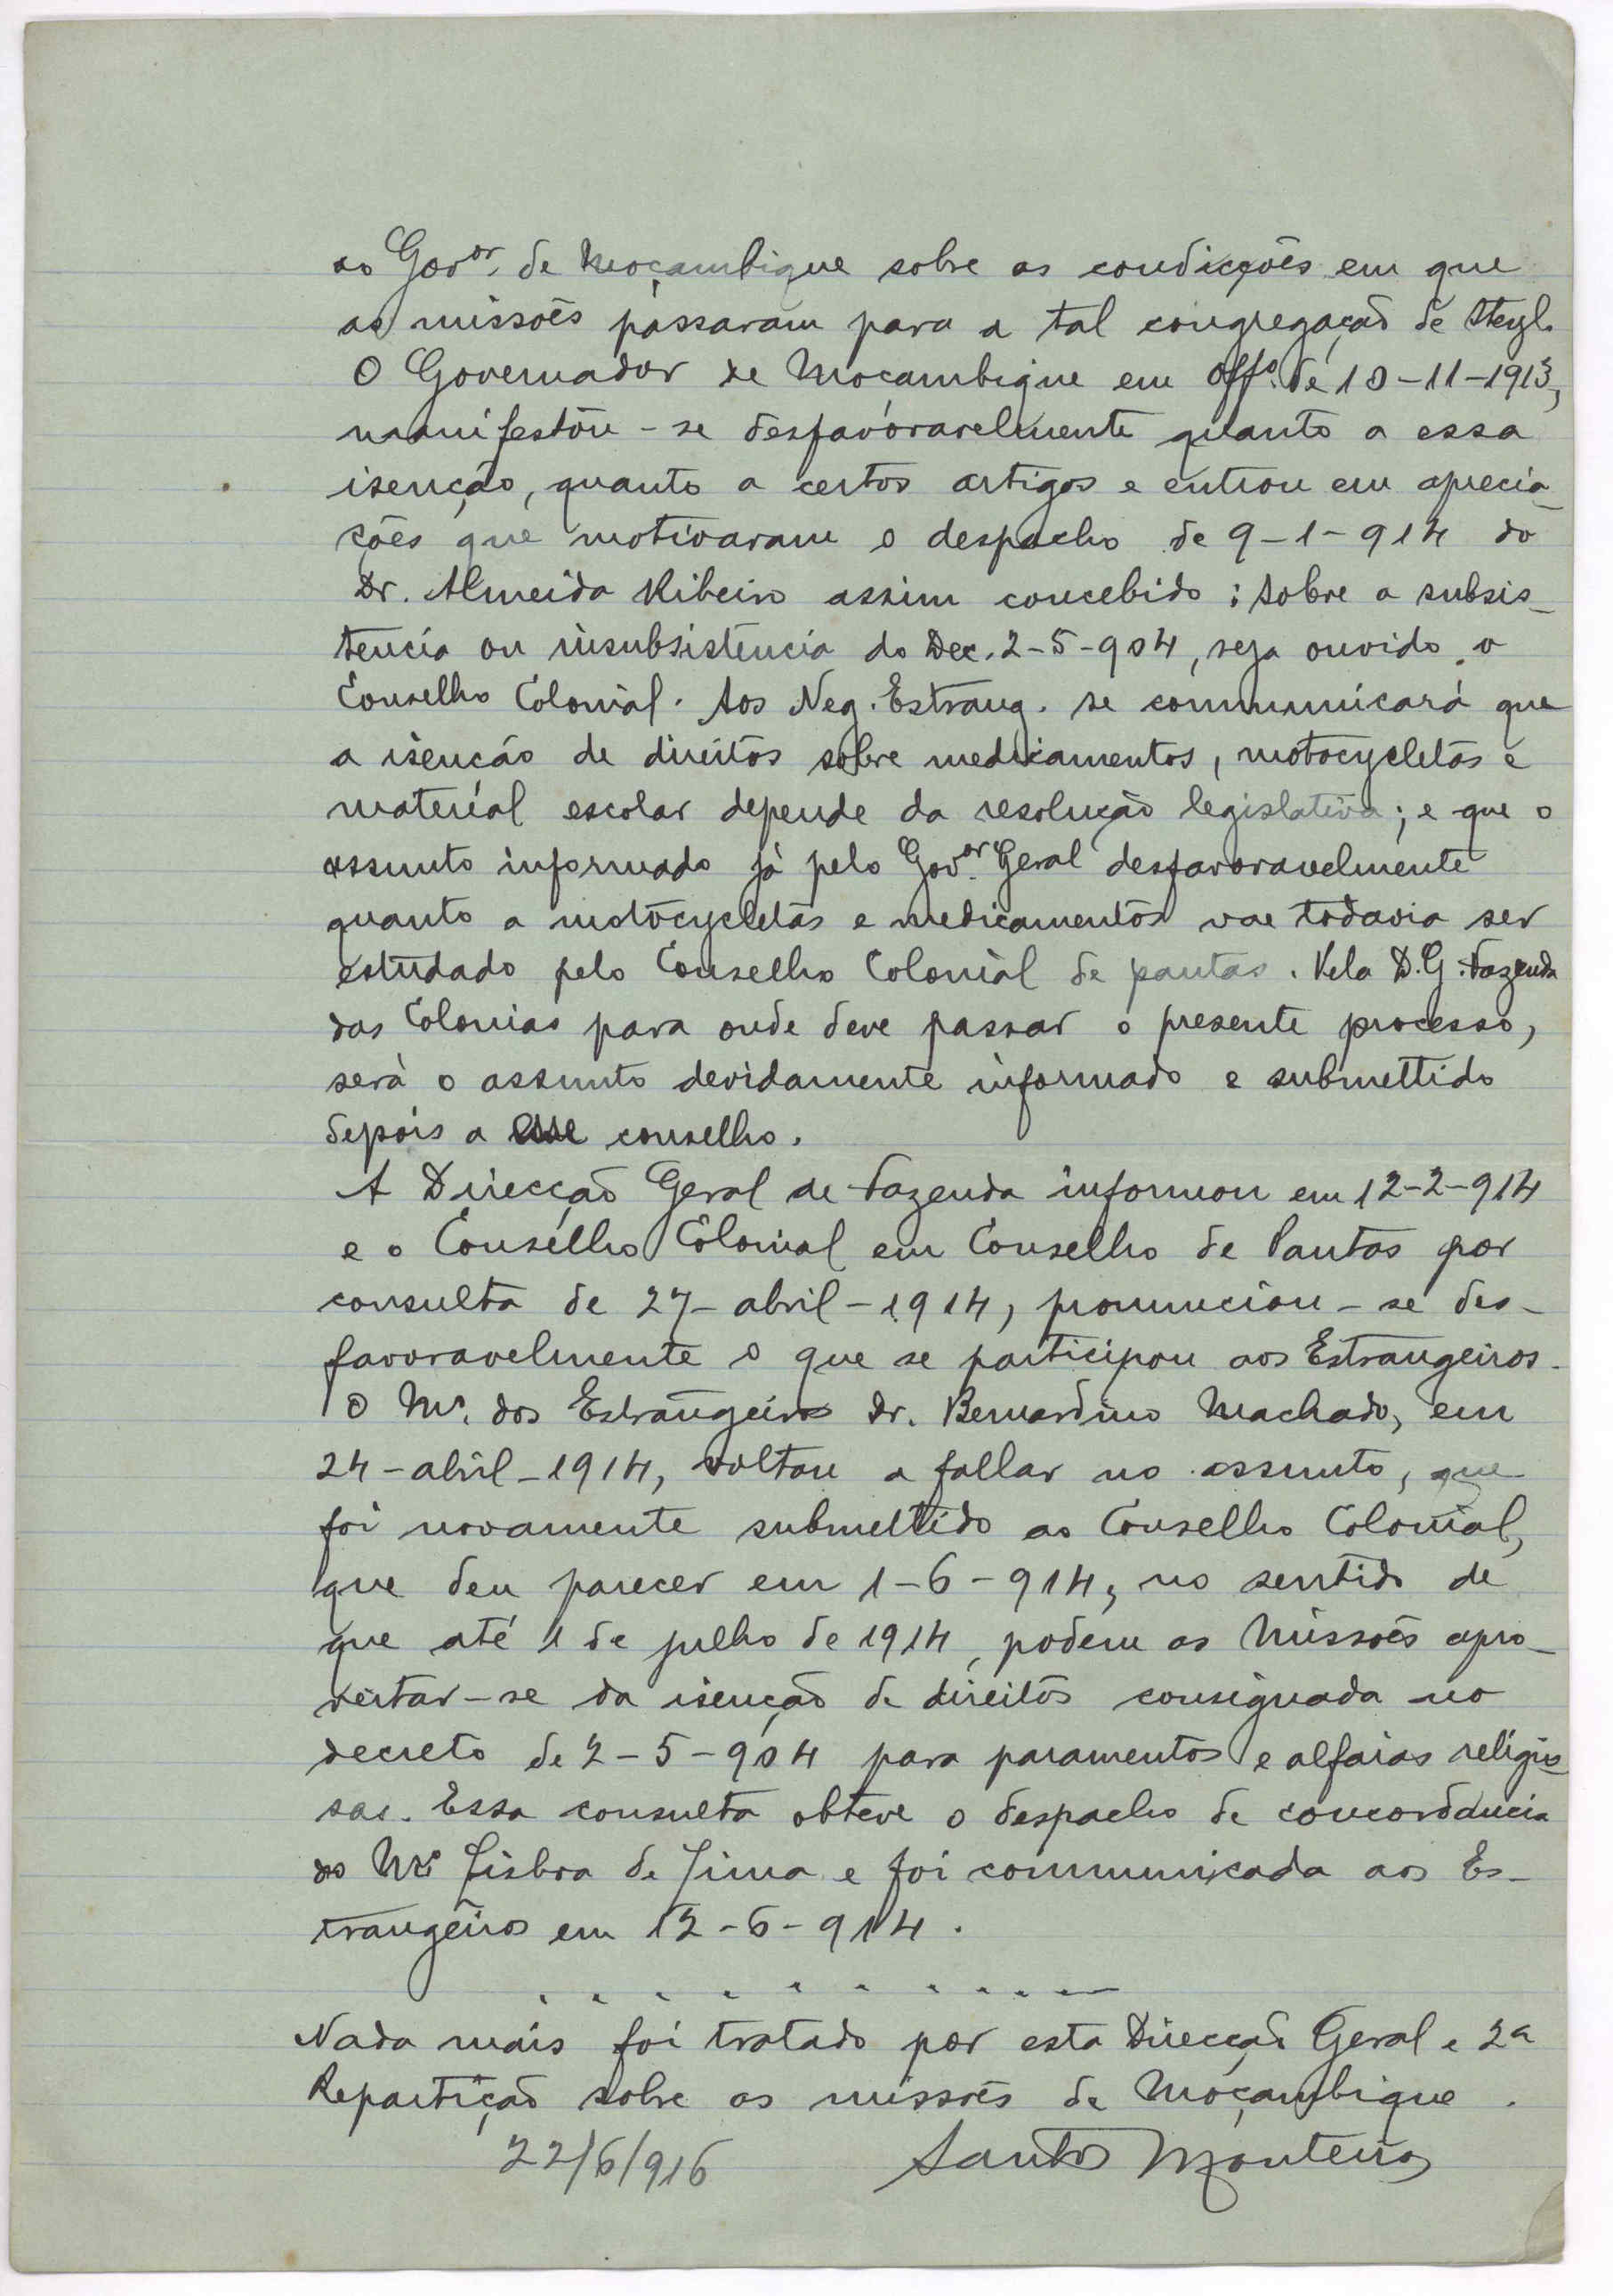 ao Gov.or de Moçambique sobre as condicções em que
as missões passaram para a tal congregação de Steyl.
O Governador de Moçambique em Off.o de 10-11-1913,
manifestou-se desfavoravelmente quanto a essa
isenção, quanto a certos artigos e entrou em aprecia-
ções que motivaram o despacho de 9-1-914 do
Dr. Almeida Ribeiro assim concebido: Sobre a subsis-
tencia ou insubsistencia do Dec. 2-5-904, seja ouvido o
Conselho Colonial. Aos Neg. Estrang. se communicará que
a isenção de direitos sobre medicamentos, motocycletas e
material escolar depende da resolução legislativa; e que o
assumto informado já pelo Gov.or Geral desfavoravelmente
quanto a motocycletas e medicamentos vae todavia ser
estudado pelo Conselho Colonial de pautas. Pela D.G. Fazenda
das Colonias para onde deve passar o presente processo,
será o assumto devidamente informado e submettido
depois a esse conselho.
A Direcção Geral de Fazenda informou em 12-2-914
e o Conselho Colonial em Conselho de Pautas por
consulta de 27-abril-1914, pronunciou-se des-
favoravelmente o que se participou aos Estrangeiros.
O M.o dos Estrangeiros Dr. Bernardino Machado, em
24-abril-1914, voltou a fallar no assumto, que
foi novamente submettido ao Conselho Colonial,
que deu parecer em 1-6-914, no sentido de
que até 1 de julho de 1914, podem as Missões apro-
veitar-se da isenção de direitos consignada no
decreto de 2-5-904 para paramentos e alfaias religio-
sas. Essa consulta obteve o despacho de concordancia
do M.o Lisboa de Lima e foi communicada aos Es-
trangeiros em 12-6-914.
. . . . . . . . . . .
Nada mais foi tratado por esta Direcção Geral e 2a
Repartição sobre as missões de Moçambique.
22/6/916 Santos Monteiro